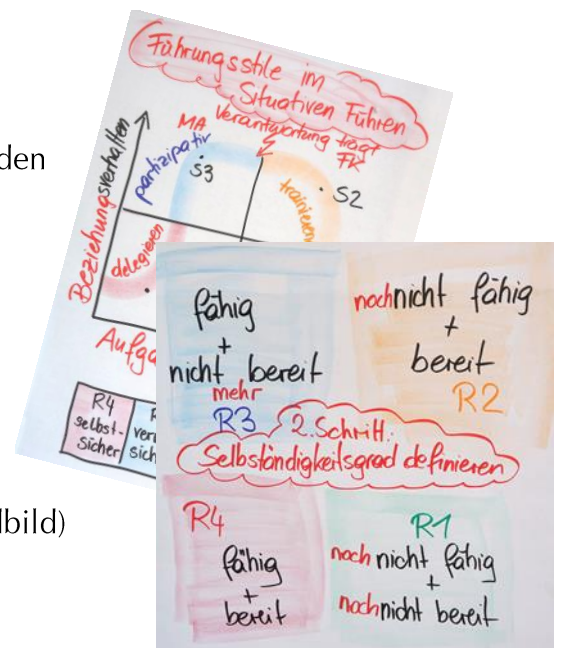 Führungsstile im
Situativen Führen
MA
Verantwortung trägt
FK
Beziehungsverhalten
partizipativ
S3
trainieren
S2
delegieren
R4
selbst-
sicher
den
fähig
+
nicht bereit
mehr
R3
nochnicht fähig
+
bereit
R2
2. Schritt:
Selbständigkeitsgrad definieren
R4
fähig
+
bereit
R1
noch nicht fähig
+
nochnicht bereit